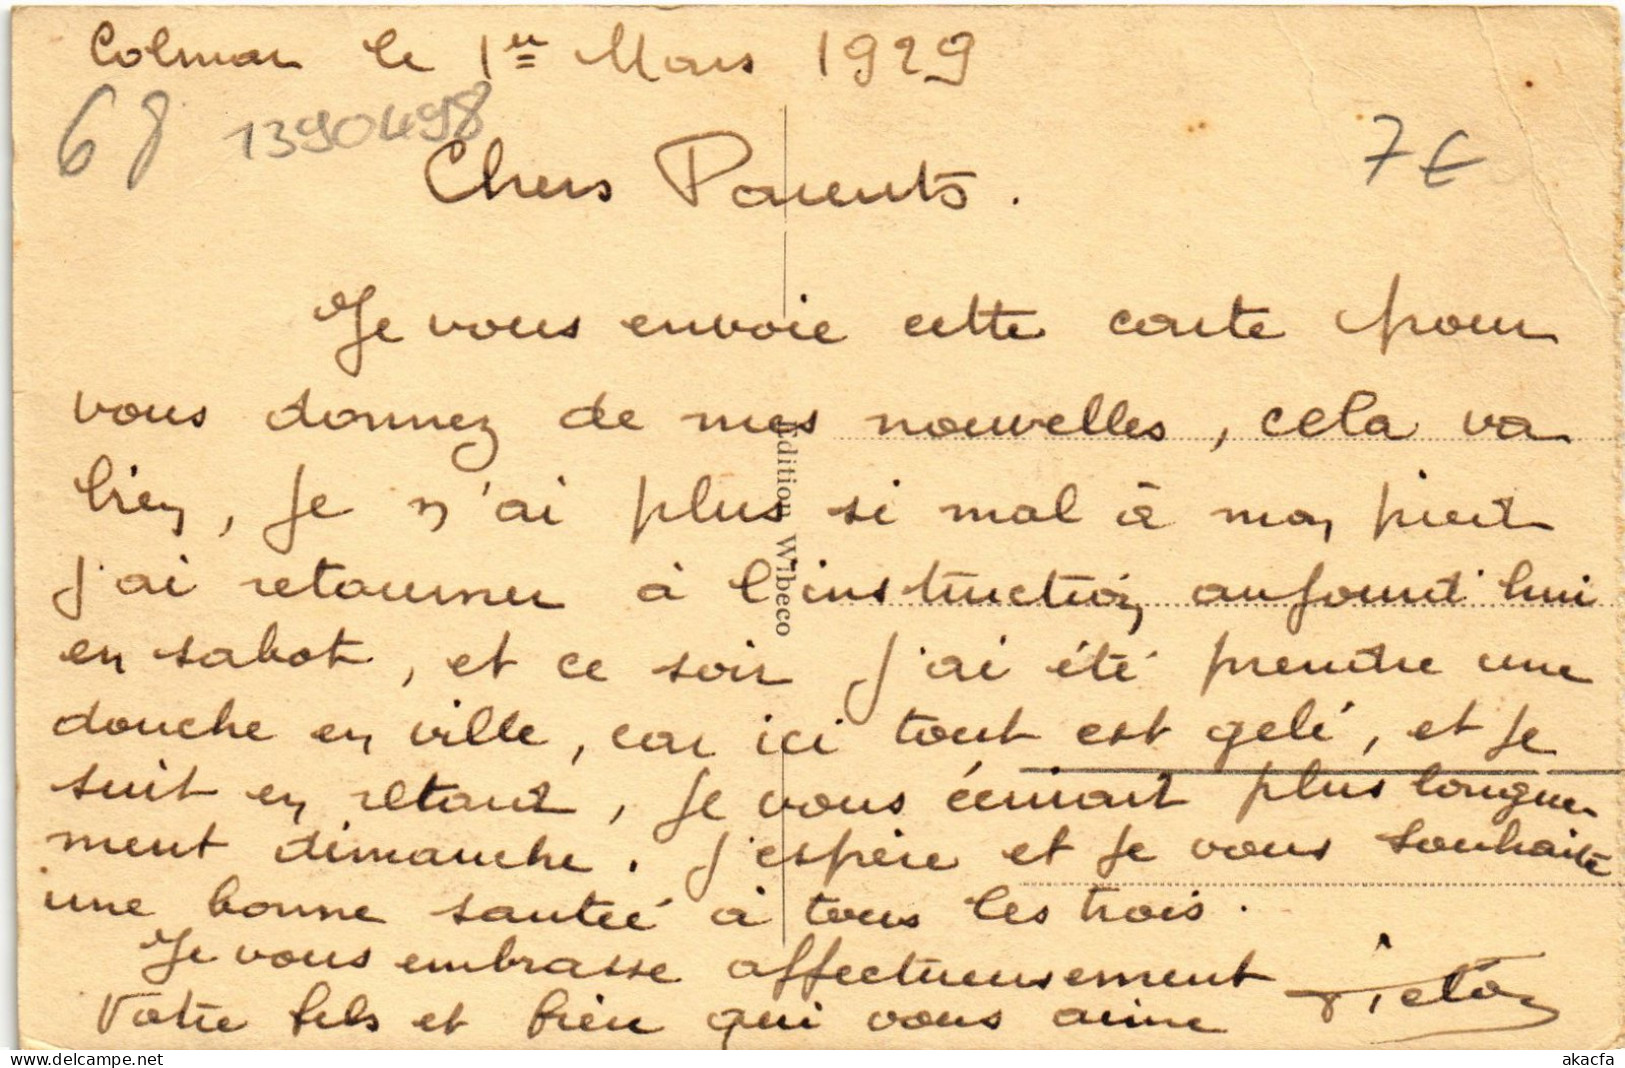 Colmar le 1er Mars 1929
68 13990498
7€
Chers Parents.
Je vous envoie cette carte pour
vous donnez de mes nouvelles, cela va
bien, je n'ai plus si mal à mon piert
j'ai retourner à l'instruction aujourd'hui
en sabot, et ce soir j'ai été prendre une
douche en ville, car ici tout est gelé, et je
suit en retard, je vous écrirait plus longue-
ment dimanche. J'espère et je vous souhaite
une bonne santée à tous les trois.
Je vous embrasse affectueusement
Votre fils et bien qui vous aime Victor
Edition Wibeco
delcampe.net
akacfa